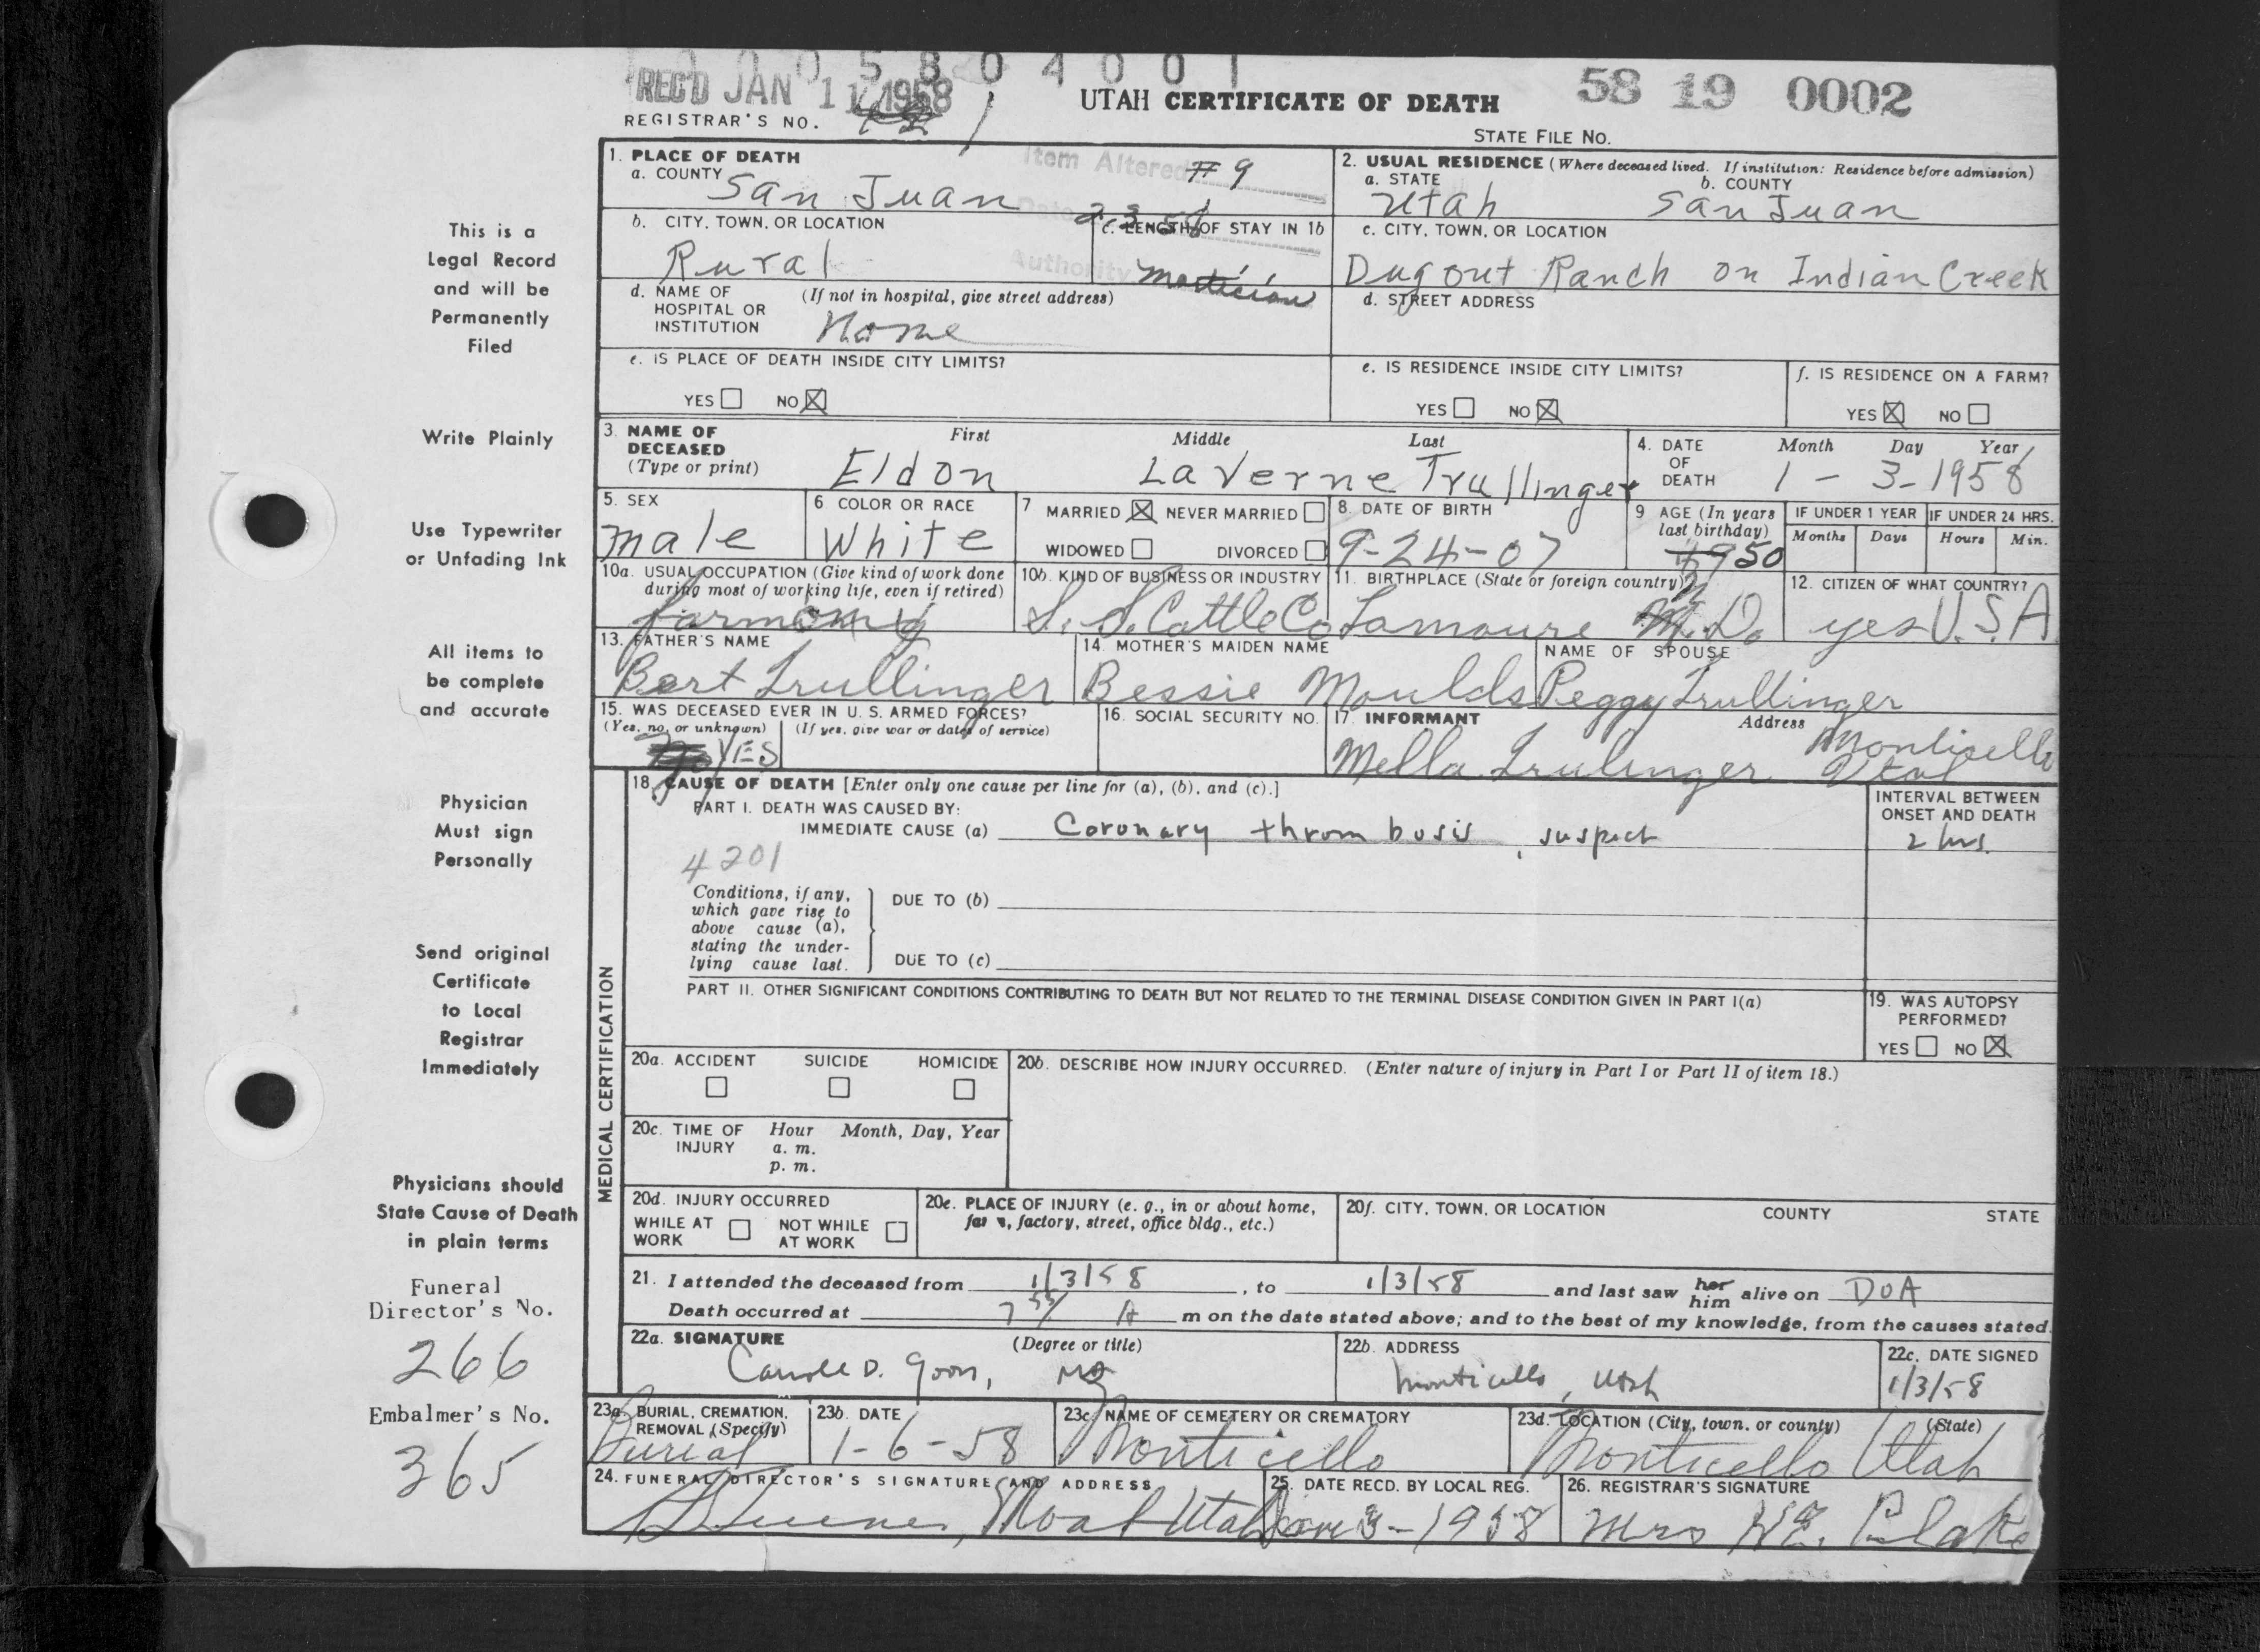 1 0 0 5 8 0 4 0 0 1
REC'D JAN 11 1958
58 19 0002
UTAH CERTIFICATE OF DEATH
REGISTRAR'S NO. 1
STATE FILE NO.
This is a
Legal Record
and will be
Permanently
Filed
Write Plainly
Use Typewriter
or Unfading Ink
All items to
be complete
and accurate
Physician
Must sign
Personally
Send original
Certificate
to Local
Registrar
Immediately
Physicians should
State Cause of Death
in plain terms
Funeral
Director's No.
266
Embalmer's No.
365
1. PLACE OF DEATH
a. COUNTY
San Juan
Item Altered #9
Date 2 3 58
Authority Mortician
2. USUAL RESIDENCE (Where deceased lived. If institution: Residence before admission)
a. STATE b. COUNTY
Utah San Juan
b. CITY, TOWN, OR LOCATION
Rural
c. LENGTH OF STAY IN 1b
c. CITY, TOWN, OR LOCATION
Dugout Ranch on Indian Creek
d. NAME OF HOSPITAL OR INSTITUTION (If not in hospital, give street address)
None
d. STREET ADDRESS
e. IS PLACE OF DEATH INSIDE CITY LIMITS?
YES NO X
e. IS RESIDENCE INSIDE CITY LIMITS?
YES NO X
f. IS RESIDENCE ON A FARM?
YES X NO
3. NAME OF DECEASED (Type or print) First Middle Last
Eldon LaVerne Trullinger
4. DATE OF DEATH Month Day Year
1 - 3 - 1958
5. SEX
male
6 COLOR OR RACE
White
7 MARRIED X NEVER MARRIED
WIDOWED DIVORCED
8. DATE OF BIRTH
9-24-07
9 AGE (In years last birthday)
49 50
IF UNDER 1 YEAR IF UNDER 24 HRS.
Months Days Hours Min.
10a. USUAL OCCUPATION (Give kind of work done during most of working life, even if retired)
farming
10b. KIND OF BUSINESS OR INDUSTRY
S. S. Cattle Co
11. BIRTHPLACE (State or foreign country)
Lamoure N. D.
12. CITIZEN OF WHAT COUNTRY?
yes U.S.A
13. FATHER'S NAME
Bert Trullinger
14. MOTHER'S MAIDEN NAME
Bessie Moulds
NAME OF SPOUSE
Peggy Trullinger
15. WAS DECEASED EVER IN U. S. ARMED FORCES?
(Yes, no, or unknown) (If yes, give war or dates of service)
YES
16. SOCIAL SECURITY NO.
17. INFORMANT Address
Mella Trulinger Monticello Utah
MEDICAL CERTIFICATION
18. CAUSE OF DEATH [Enter only one cause per line for (a), (b), and (c).]
PART I. DEATH WAS CAUSED BY:
IMMEDIATE CAUSE (a) Coronary thrombosis, suspect
INTERVAL BETWEEN ONSET AND DEATH
2 hrs.
4201
Conditions, if any, which gave rise to above cause (a), stating the underlying cause last.
DUE TO (b)
DUE TO (c)
PART II. OTHER SIGNIFICANT CONDITIONS CONTRIBUTING TO DEATH BUT NOT RELATED TO THE TERMINAL DISEASE CONDITION GIVEN IN PART I(a)
19. WAS AUTOPSY PERFORMED?
YES NO X
20a. ACCIDENT SUICIDE HOMICIDE
20b. DESCRIBE HOW INJURY OCCURRED. (Enter nature of injury in Part I or Part II of item 18.)
20c. TIME OF INJURY Hour Month, Day, Year
a. m.
p. m.
20d. INJURY OCCURRED
WHILE AT WORK NOT WHILE AT WORK
20e. PLACE OF INJURY (e. g., in or about home, farm, factory, street, office bldg., etc.)
20f. CITY, TOWN, OR LOCATION COUNTY STATE
21. I attended the deceased from 1/3/58, to 1/3/58 and last saw her him alive on DOA
Death occurred at 7 55 A m on the date stated above; and to the best of my knowledge, from the causes stated.
22a. SIGNATURE (Degree or title)
D. Goon, MD
22b. ADDRESS
Monticello, Utah
22c. DATE SIGNED
1/3/58
23a. BURIAL, CREMATION, REMOVAL (Specify)
Burial
23b. DATE
1-6-58
23c. NAME OF CEMETERY OR CREMATORY
Monticello
23d. LOCATION (City, town, or county) (State)
Monticello Utah
24. FUNERAL DIRECTOR'S SIGNATURE AND ADDRESS
Moab Utah
25. DATE RECD. BY LOCAL REG.
Jan 3-1958
26. REGISTRAR'S SIGNATURE
Mrs W.E. Blake